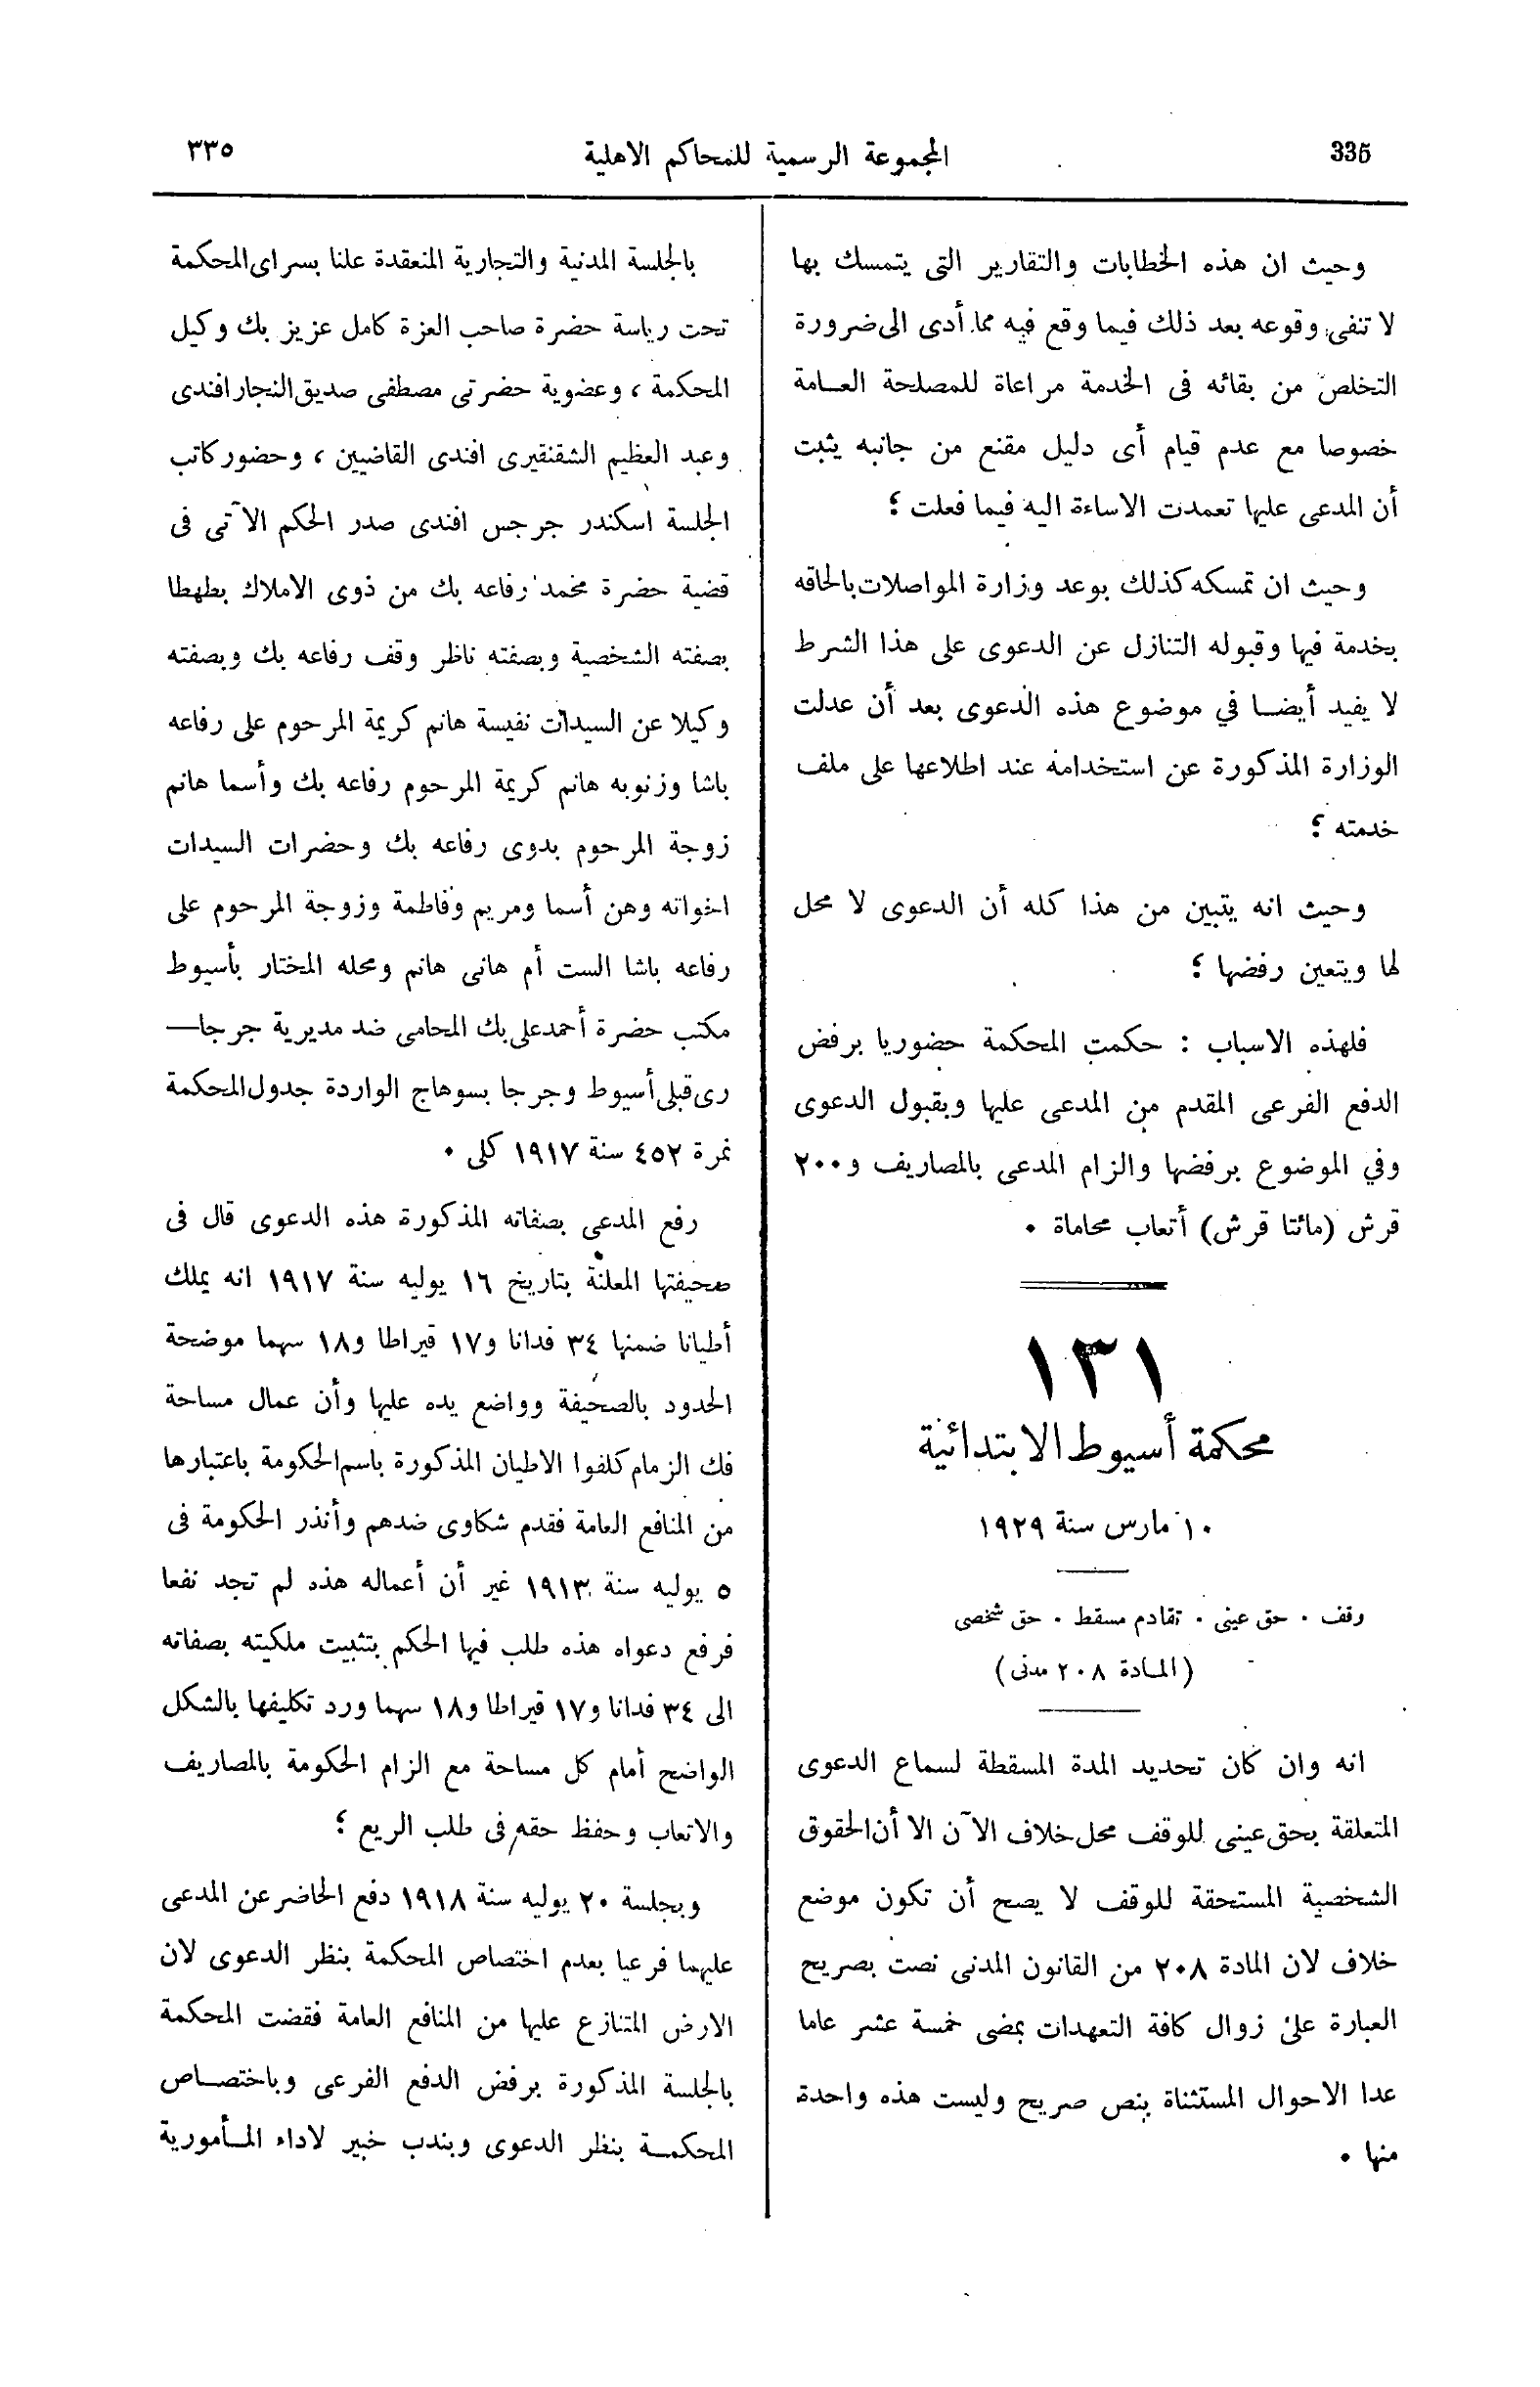 335
المجموعة الرسمية للمحاكم الاهلية
٣٣٥
وحيث ان هذه الخطابات والتقارير التى يتمسك بها
لا تنفى وقوعه بعد ذلك فيما وقع فيه مما أدى الى ضرورة
التخلص من بقائه فى الخدمة مراعاة للمصلحة العـامة
خصوصا مع عدم قيام أى دليل مقنع من جانبه يثبت
أن المدعى عليها تعمدت الاساءة اليه فيما فعلت ؛
وحيث ان تمسكه كذلك بوعد وزارة المواصلات بالحاقه
بخدمة فيها وقبوله التنازل عن الدعوى على هذا الشرط
لا يفيد أيضـا في موضوع هذه الدعوى بعد أن عدلت
الوزارة المذكورة عن استخدامه عند اطلاعها على ملف
خدمته ؛
وحيث انه يتبين من هذا كله أن الدعوى لا محل
لها ويتعين رفضها ؛
فلهذه الاسباب : حكمت المحكمة حضوريا برفض
الدفع الفرعى المقدم من المدعى عليها وبقبول الدعوى
وفي الموضوع برفضها والزام المدعى بالمصاريف و٢٠٠
قرش (مائتا قرش) أتعاب محاماة ٠
١٣١
محكمة أسيوط الابتدائية
١٠ مارس سنة ١٩٢٩
وقف ٠ حق عينى ٠ تقادم مسقط ٠ حق شخصى
(المـادة ٢٠٨ مدنى)
انه وان كان تحديد المدة المسقطة لسماع الدعوى
المتعلقة بحق عينى للوقف محل خلاف الآن الا أن الحقوق
الشخصية المستحقة للوقف لا يصح أن تكون موضع
خلاف لان المادة ٢٠٨ من القانون المدنى نصت بصريح
العبارة على زوال كافة التعهدات بمضى خمسة عشر عاما
عدا الاحوال المستثناة بنص صريح وليست هذه واحدة
منها ٠
بالجلسة المدنية والتجارية المنعقدة علنا بسراى المحكمة
تحت رياسة حضرة صاحب العزة كامل عزيز بك وكيل
المحكمة ، وعضوية حضرتى مصطفى صديق النجار افندى
وعبد العظيم الشقنقيرى افندى القاضيين ، وحضور كاتب
الجلسة اسكندر جرجس افندى صدر الحكم الآتى فى
قضية حضرة محمد رفاعه بك من ذوى الاملاك بطهطا
بصفته الشخصية وبصفته ناظر وقف رفاعه بك وبصفته
وكيلا عن السيدات نفيسة هانم كريمة المرحوم على رفاعه
باشا وزنوبه هانم كريمة المرحوم رفاعه بك وأسما هانم
زوجة المرحوم بدوى رفاعه بك وحضرات السيدات
اخواته وهن أسما ومريم وفاطمة وزوجة المرحوم على
رفاعه باشا الست أم هانى هانم ومحله المختار بأسيوط
مكتب حضرة أحمد على بك المحامى ضد مديرية جرجا—
رى قبلى أسيوط وجرجا بسوهاج الواردة جدول المحكمة
نمرة ٤٥٢ سنة ١٩١٧ كلى ٠
رفع المدعى بصفاته المذكورة هذه الدعوى قال فى
صحيفتها المعلنة بتاريخ ١٦ يوليه سنة ١٩١٧ انه يملك
أطيانا ضمنها ٣٤ فدانا و١٧ قيراطا و١٨ سهما موضحة
الحدود بالصحيفة وواضع يده عليها وأن عمال مساحة
فك الزمام كلفوا الاطيان المذكورة باسم الحكومة باعتبارها
من المنافع العامة فقدم شكاوى ضدهم وأنذر الحكومة فى
٥ يوليه سنة ١٩١٣ غير أن أعماله هذه لم تجد نفعا
فرفع دعواه هذه طلب فيها الحكم بتثبيت ملكيته بصفاته
الى ٣٤ فدانا و١٧ قيراطا و١٨ سهما ورد تكليفها بالشكل
الواضح أمام كل مساحة مع الزام الحكومة بالمصاريف
والاتعاب وحفظ حقه فى طلب الريع ؛
وبجلسة ٢٠ يوليه سنة ١٩١٨ دفع الحاضر عن المدعى
عليهما فرعيا بعدم اختصاص المحكمة بنظر الدعوى لان
الارض المتنازع عليها من المنافع العامة فقضت المحكمة
بالجلسة المذكورة برفض الدفع الفرعى وباختصـاص
المحكمـة بنظر الدعوى وبندب خبير لاداء المـأمورية